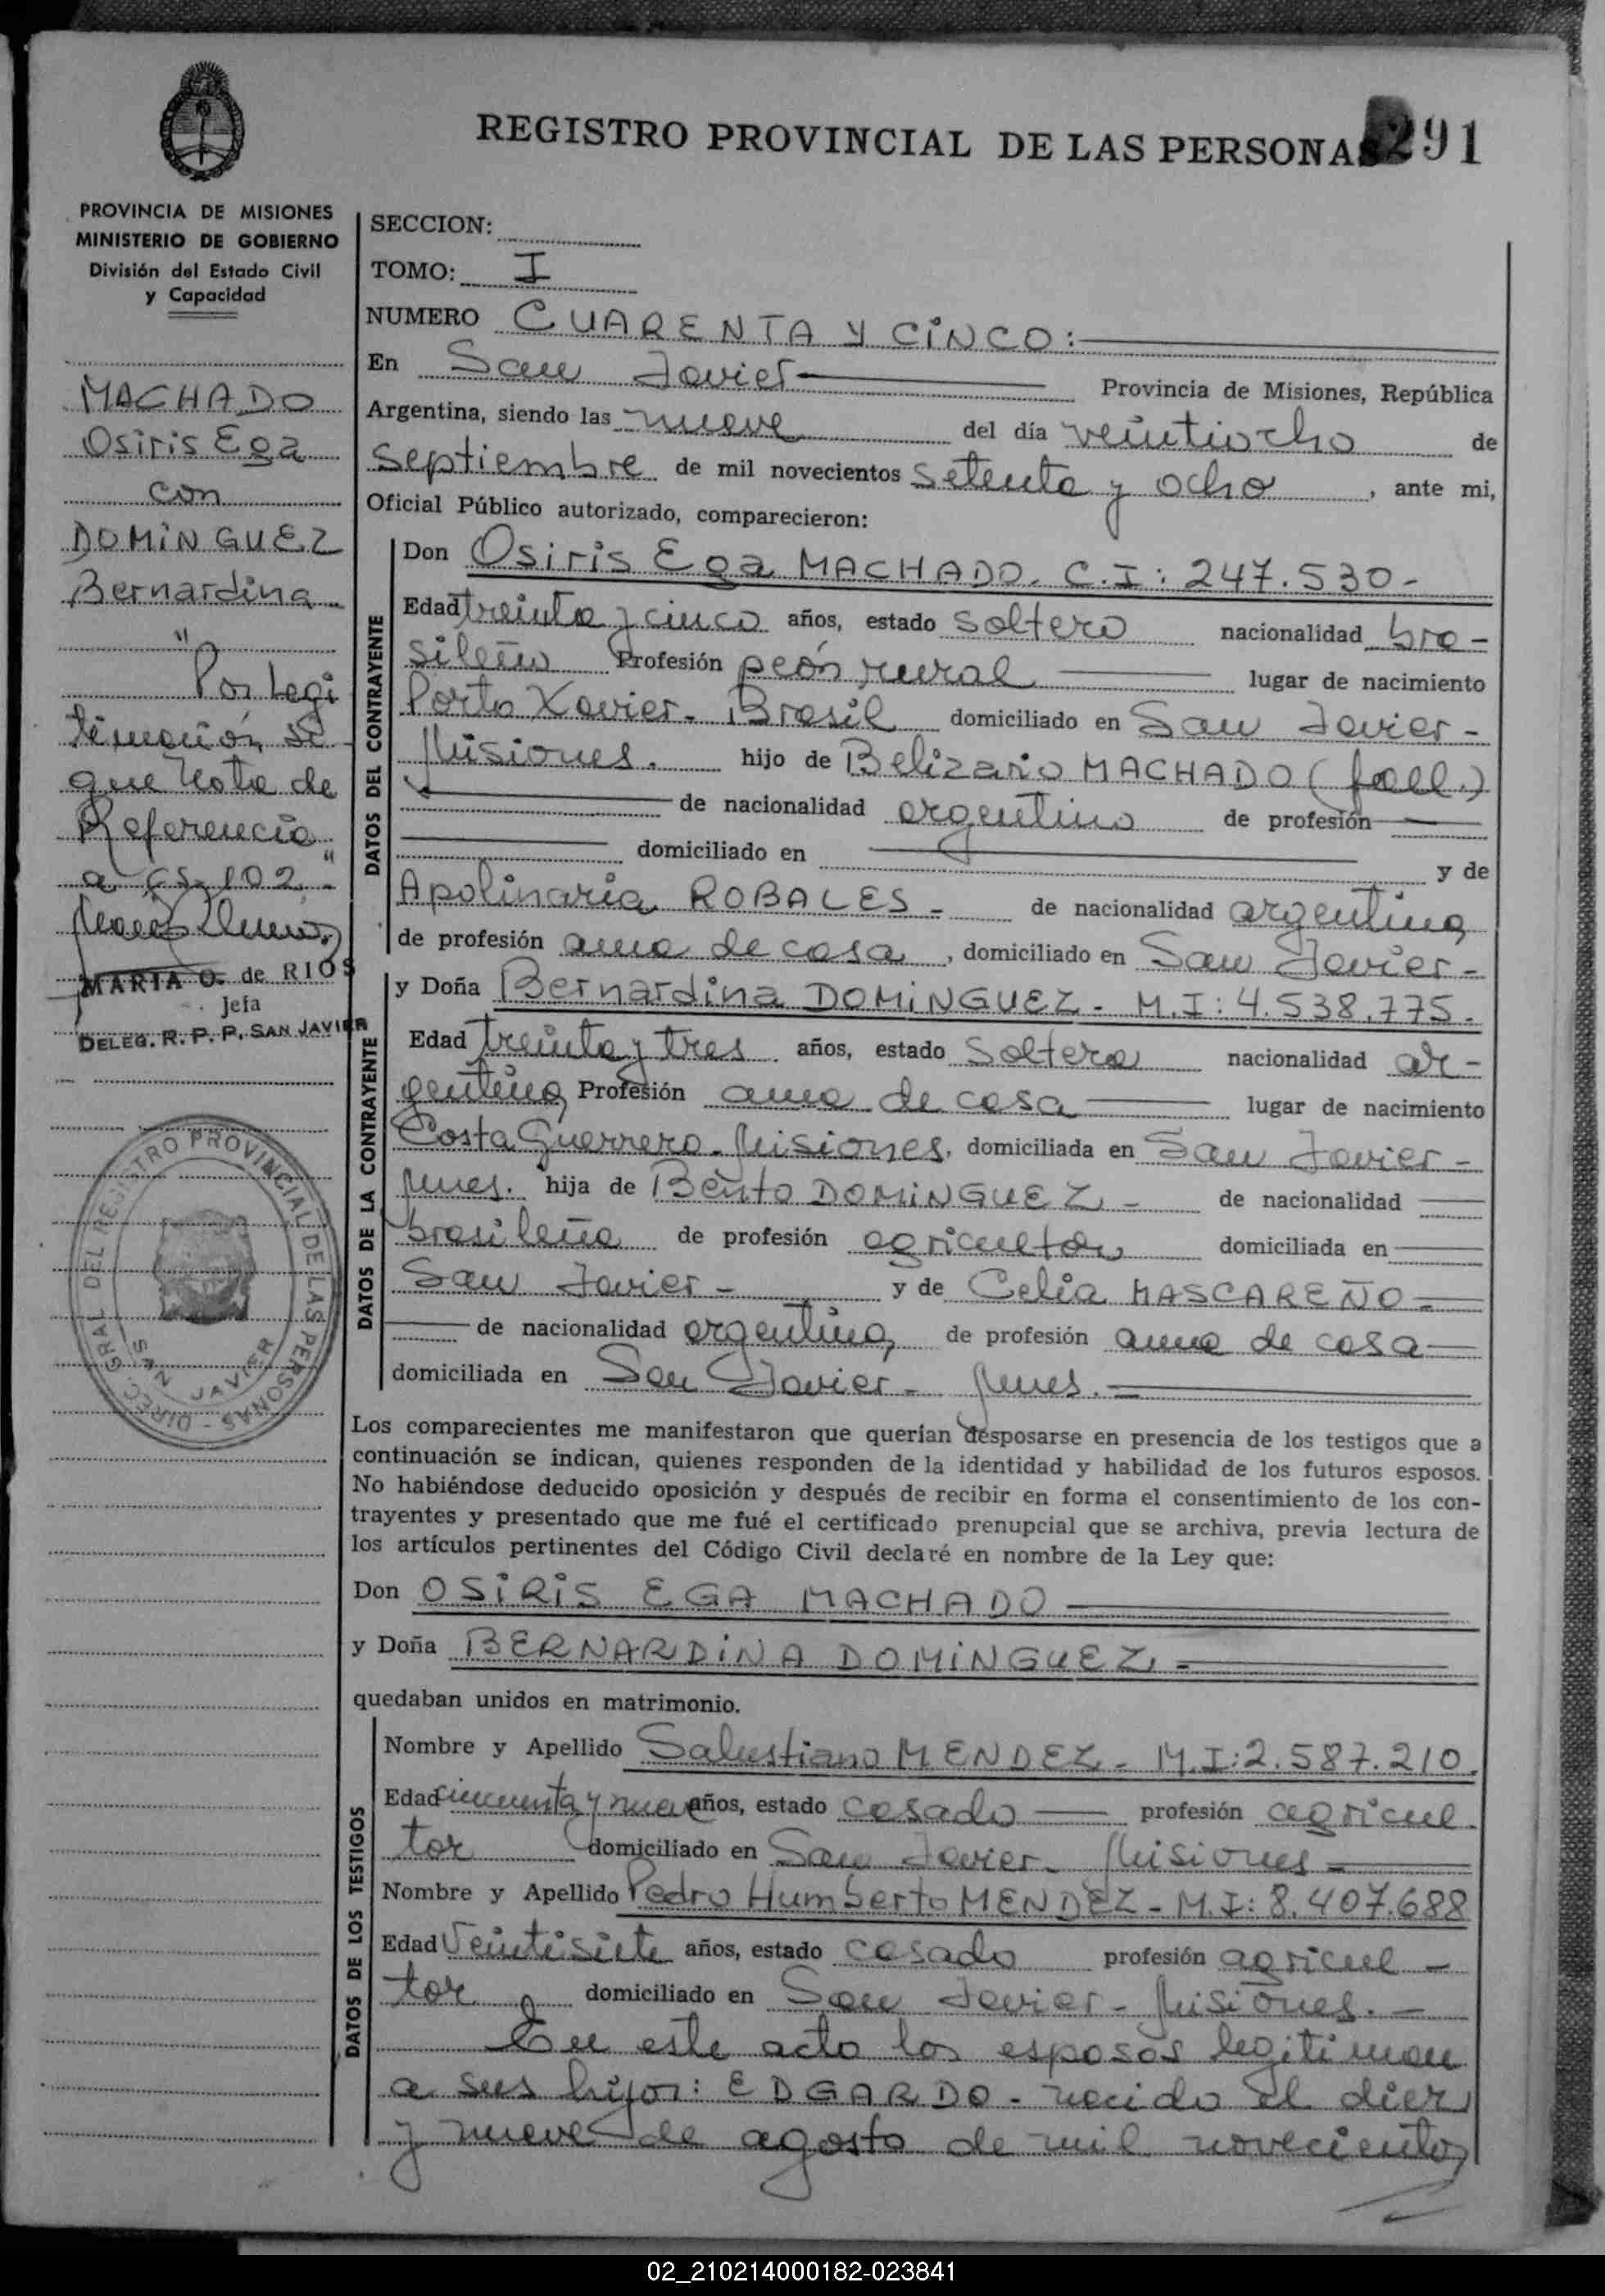 REGISTRO PROVINCIAL DE LAS PERSONAS
291
PROVINCIA DE MISIONES
MINISTERIO DE GOBIERNO
División del Estado Civil
y Capacidad
MACHADO
Osiris Ega
con
DOMINGUEZ
Bernardina
"Por Legi
timación si
gue Nota de
Referencia
a fs. 102"
MARIA O. de RIOS
Jefa
DELEG. R. P. P. SAN JAVIER
DIREC. GRAL DEL REGISTRO PROVINCIAL DE LAS PERSONAS -
SAN JAVIER
SECCION:
TOMO: I
NUMERO CUARENTA Y CINCO:
En San Javier Provincia de Misiones, República
Argentina, siendo las nueve del día veintiocho de
septiembre de mil novecientos setenta y ocho, ante mi,
Oficial Público autorizado, comparecieron:
DATOS DEL CONTRAYENTE
Don Osiris Ega MACHADO. C.I: 247.530-
Edad treinta y cinco años, estado soltero nacionalidad bra-
sileño Profesión peón rural lugar de nacimiento
Porto Xavier- Brasil domiciliado en San Javier-
Misiones. hijo de Belizario MACHADO (fall.)
de nacionalidad argentino de profesión
domiciliado en y de
Apolinaria ROBALES- de nacionalidad argentina
de profesión ama de casa, domiciliado en San Javier-
DATOS DE LA CONTRAYENTE
y Doña Bernardina DOMINGUEZ- M.I: 4.538.775-
Edad treinta y tres años, estado soltera nacionalidad ar-
gentina Profesión ama de casa lugar de nacimiento
Costa Guerrero-Misiones, domiciliada en San Javier-
Mnes. hija de Bento DOMINGUEZ- de nacionalidad
brasileña de profesión agricultor domiciliada en
San Javier- y de Celia MASCAREÑO-
de nacionalidad argentina de profesión ama de casa
domiciliada en San Javier- Mnes.
Los comparecientes me manifestaron que querían desposarse en presencia de los testigos que a
continuación se indican, quienes responden de la identidad y habilidad de los futuros esposos.
No habiéndose deducido oposición y después de recibir en forma el consentimiento de los con-
trayentes y presentado que me fué el certificado prenupcial que se archiva, previa lectura de
los artículos pertinentes del Código Civil declaré en nombre de la Ley que:
Don OSIRIS EGA MACHADO
y Doña BERNARDINA DOMINGUEZ-
quedaban unidos en matrimonio.
DATOS DE LOS TESTIGOS
Nombre y Apellido Salustiano MENDEZ- M.I: 2.587.210.
Edad cincuenta y nueve años, estado casado profesión agricul
tor domiciliado en San Javier- Misiones-
Nombre y Apellido Pedro Humberto MENDEZ- M.I: 8.407.688
Edad Veintisiete años, estado casado profesión agricul-
tor domiciliado en San Javier- Misiones.-
En este acto los esposos legitiman
a sus hijos: EDGARDO- nacido el diez
y nueve de agosto de mil novecientos
02_210214000182-023841